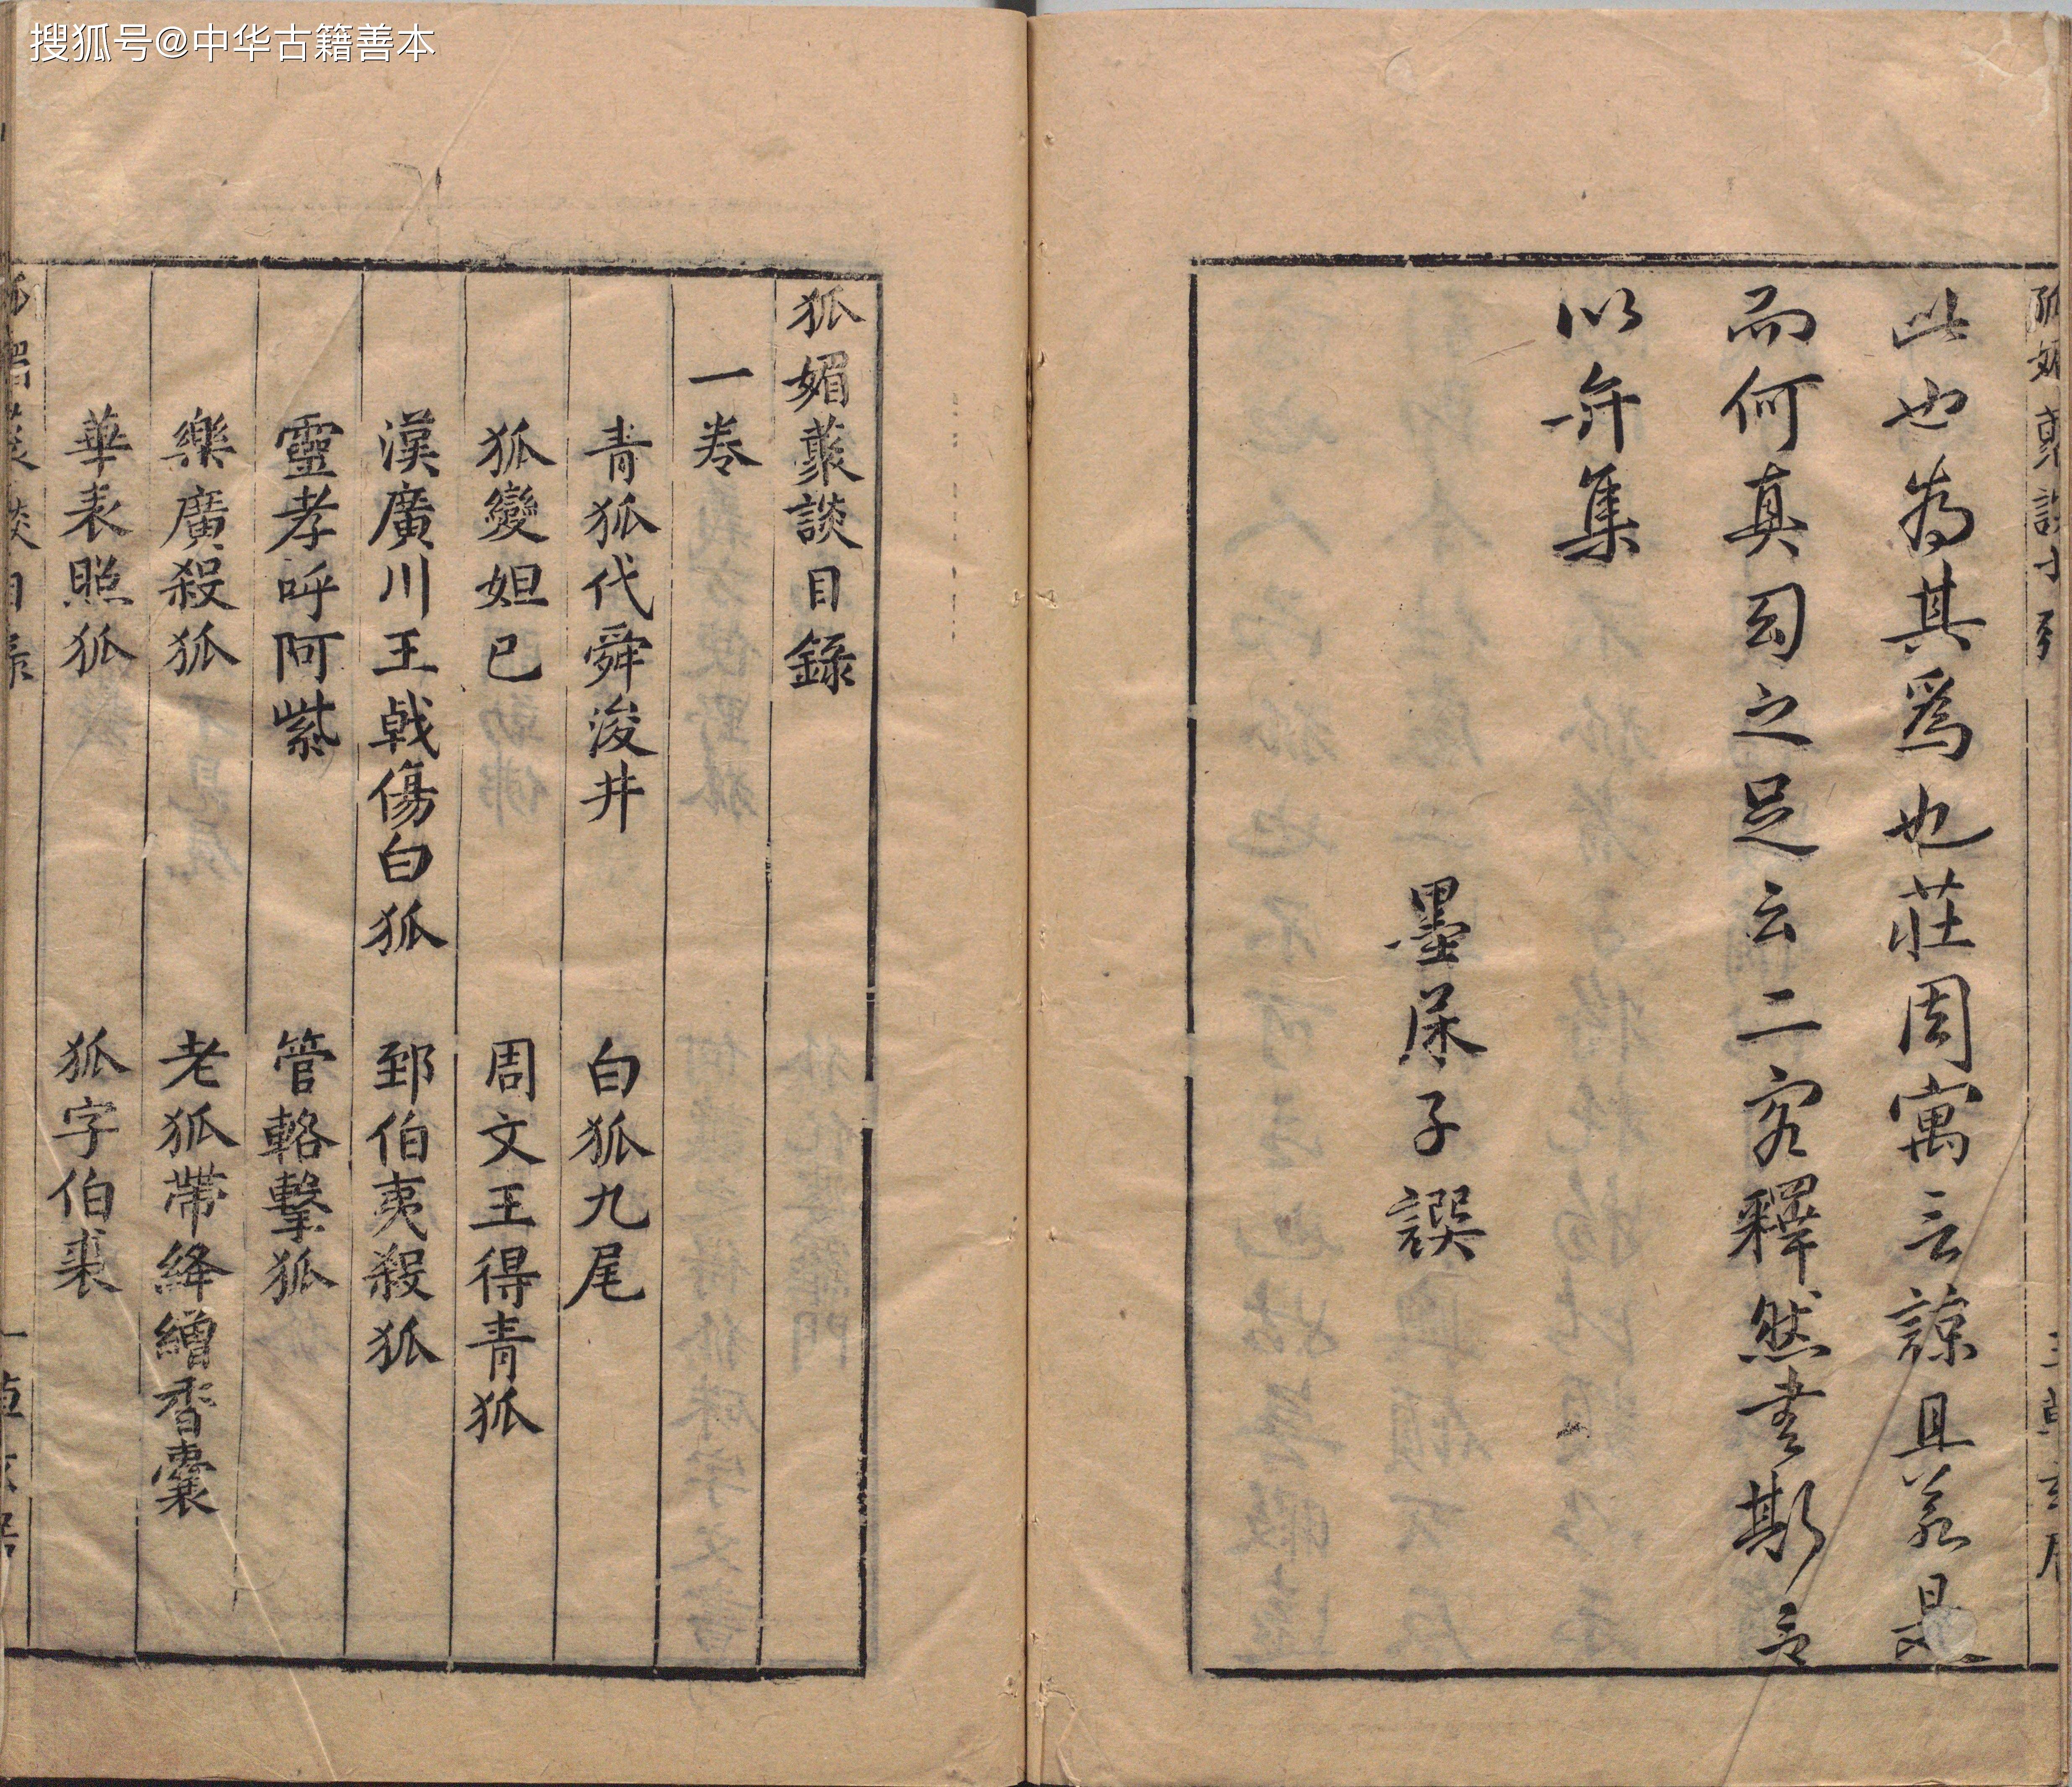 搜狐号@中华古籍善本
此也為其爲也莊周寓言諒且若是
而何真幻之足云二客釋然書斯言
以弁集
墨尿子譔
狐媚藂談目錄
一卷
青狐代舜浚井 白狐九尾
狐變妲己 周文王得青狐
漢廣川王戟傷白狐 郅伯夷殺狐
靈孝呼阿紫 管輅擊狐
樂廣殺狐 老狐帶絳繒香囊
華表照狐 狐字伯裘